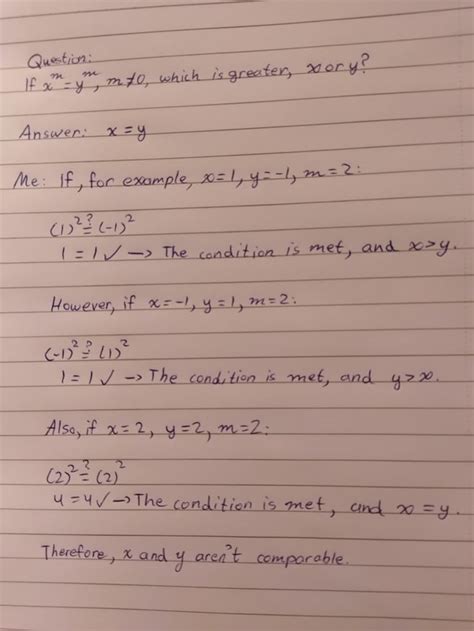 Question:
If x^m = y^m, m≠0, which is greater, x or y?
Answer: x = y
Me: If, for example, x=1, y=-1, m=2:
(1)^2 ≟ (-1)^2
1 = 1 ✓ → The condition is met, and x>y.
However, if x=-1, y=1, m=2:
(-1)^2 ≟ (1)^2
1 = 1 ✓ → The condition is met, and y>x.
Also, if x=2, y=2, m=2:
(2)^2 ≟ (2)^2
4 = 4 ✓ → The condition is met, and x = y.
Therefore, x and y aren't comparable.